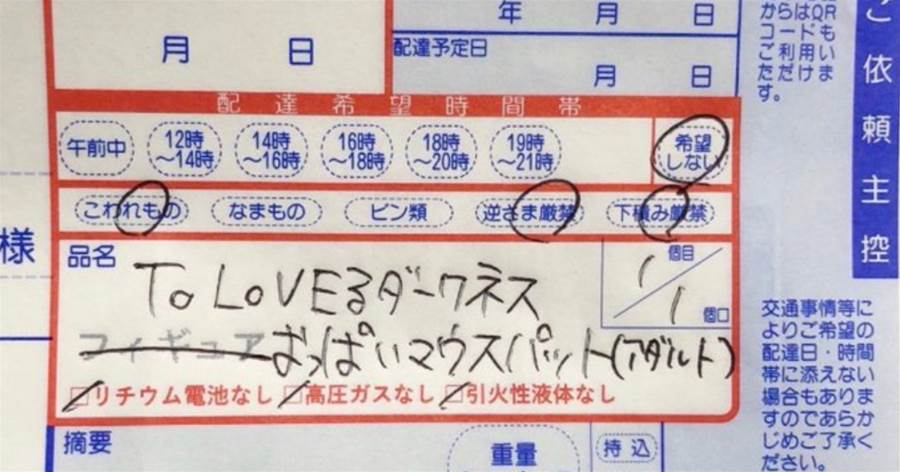 年 月 日
月 日
配達予定日
月 日
からはQR
コードも
ご利用い
ただけま
す。
ご依頼主控
配達希望時間帯
午前中 12時～14時 14時～16時 16時～18時 18時～20時 19時～21時 希望しない
こわれもの なまもの ビン類 逆さま厳禁 下積み厳禁
様
品名
1 個目 / 1 個口
To LOVEるダークネス
フィギュア おっぱいマウスパット(アダルト)
リチウム電池なし 高圧ガスなし 引火性液体なし
交通事情等に
よりご希望の
配達日・時間
帯に添えない
場合もありま
すのであらか
じめご了承く
ださい。
摘要
重量
持込